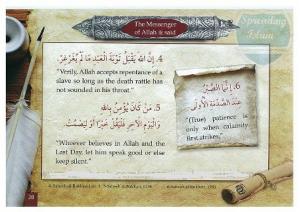 The Messenger
of Allah ﷺ said
Spreading
Islam
4. إِنَّ اللَّهَ يَقْبَلُ تَوْبَةَ الْعَبْدِ مَا لَمْ يُغَرْغِرْ
"Verily, Allah accepts repentance of a
slave so long as the death rattle has
not sounded in his throat."
5. مَنْ كَانَ يُؤْمِنُ بِاللَّهِ
وَالْيَوْمِ الْآخِرِ فَلْيَقُلْ خَيْرًا أَوْ لِيَصْمُتْ
"Whoever believes in Allah and the
Last Day, let him speak good or else
keep silent."
6. إِنَّمَا الصَّبْرُ
عِنْدَ الصَّدْمَةِ الْأُولَى
"(True) patience is
only when calamity
first strikes."
20